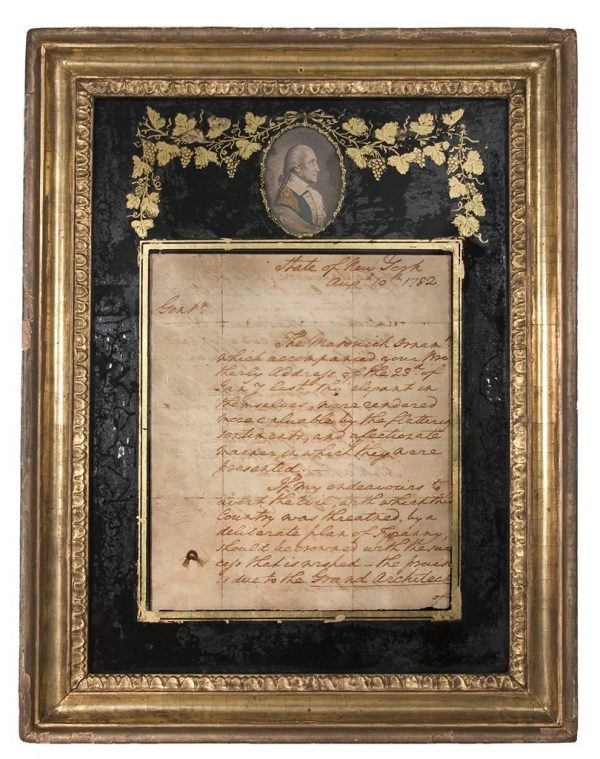 State of New York
Augt 10th 1782
Gentn
The Masonick Ornamts
which accompanied your Bro
therly Address of the 23d of
Jany last, tho' elegant in
themselves, were rendered
more valuable by the flattering
sentiments, and affectionate
manner, in which they were
presented.
If my endeavours to
avert the Evil, with which this
Country was threatned by a
deliberate plan of Tyranny,
should be crowned with the suc
cess that is wished – the praise
is due to the Grand Architect
of